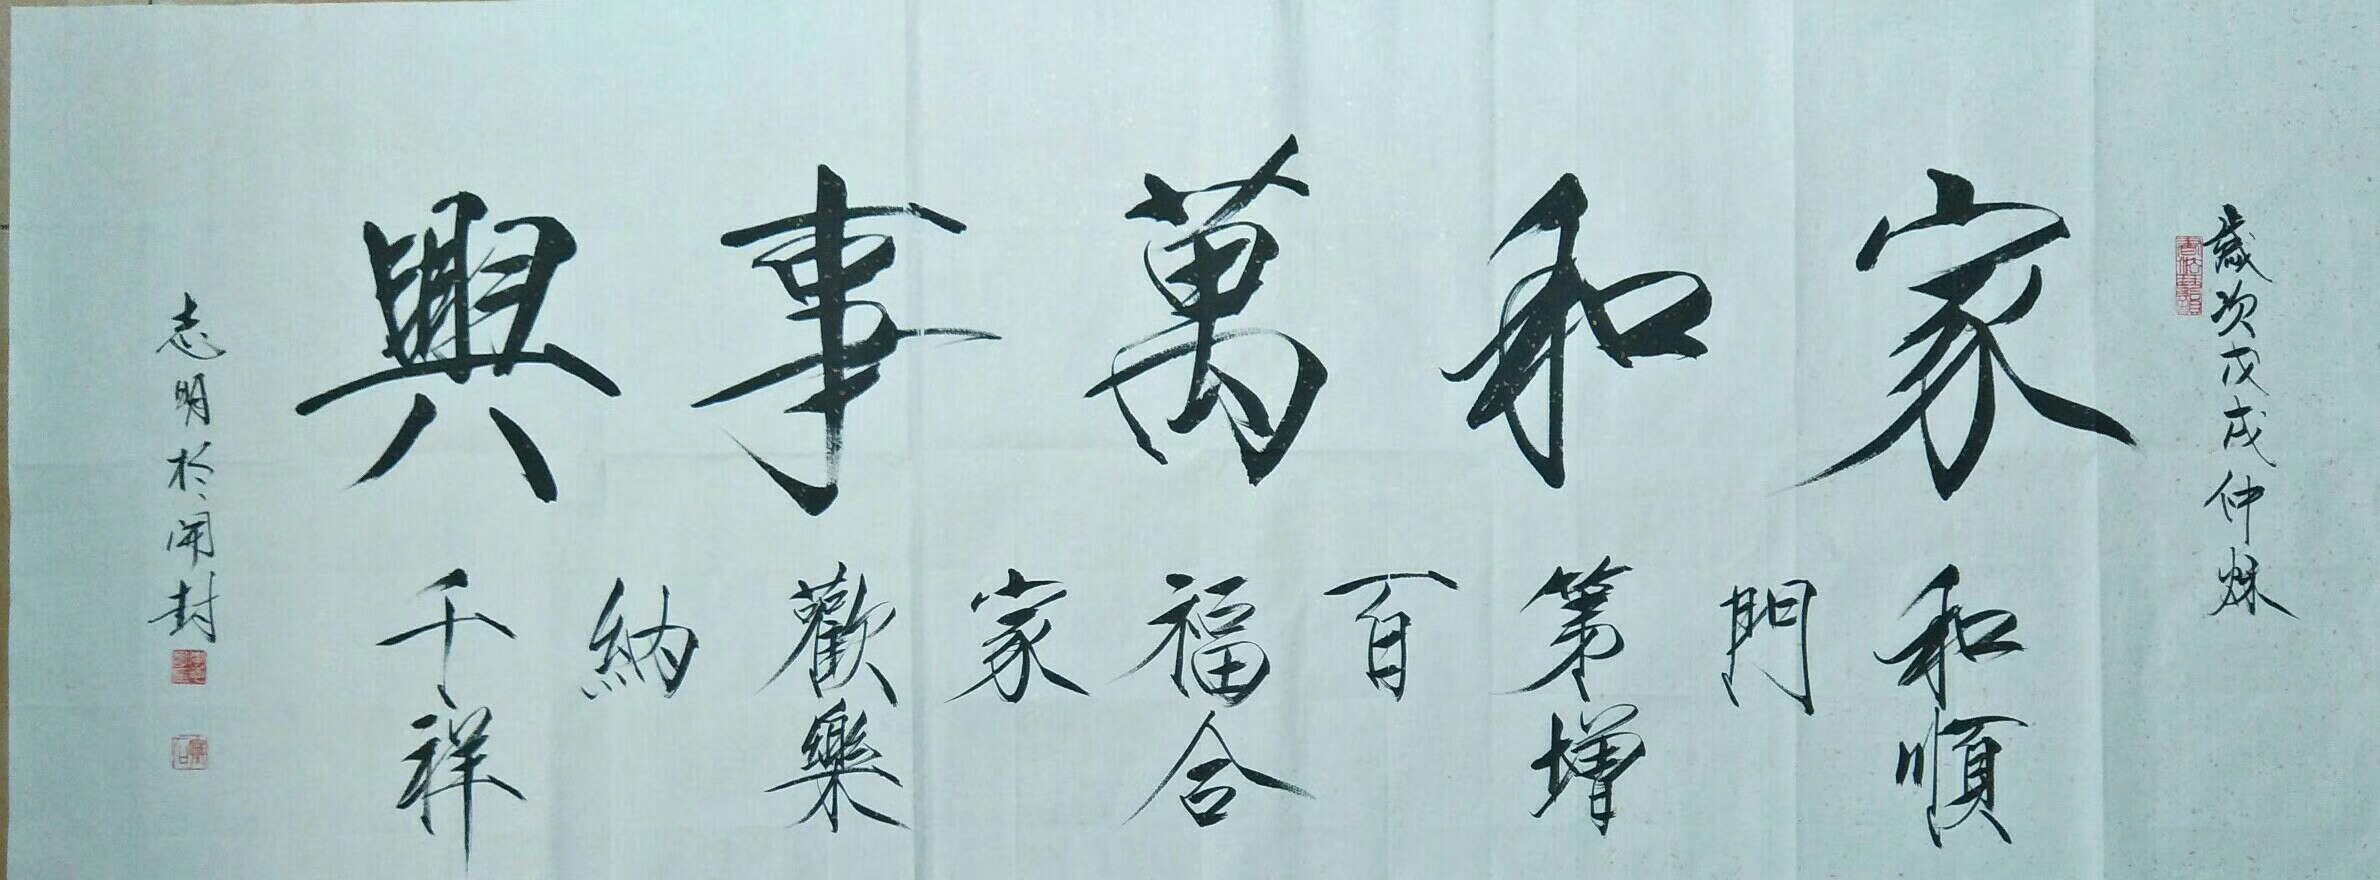 歲次戊戌仲秌
家和萬事興
和順門第增百福合家歡樂納千祥
志明於開封